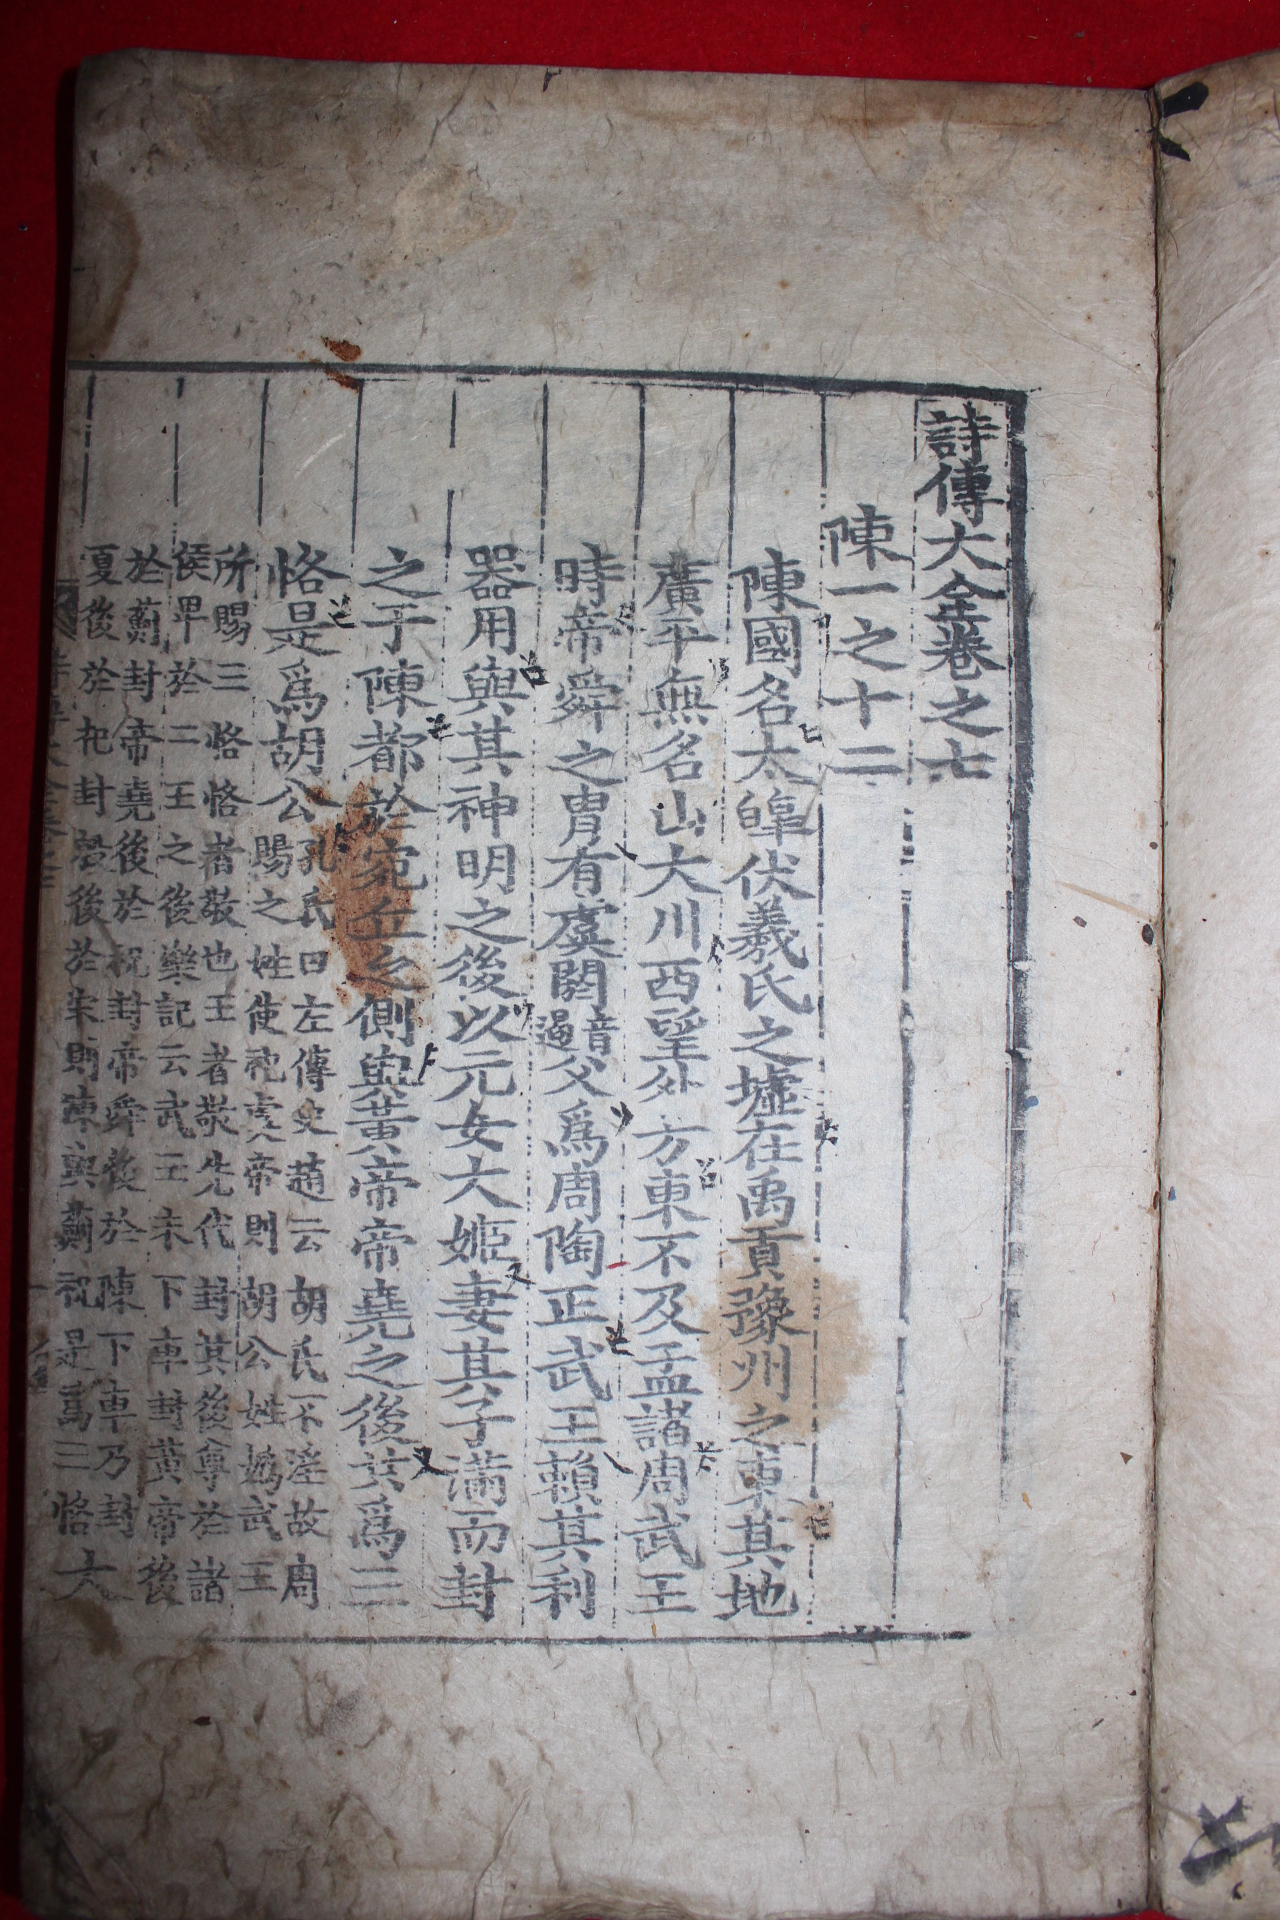 詩傳大全卷之七
陳一之十二
陳國名太皥伏羲氏之墟在禹貢豫州之東其地
廣平無名山大川西望外方東不及孟諸周武王
時帝舜之冑有虞閼音遏父爲周陶正武王賴其利
器用與其神明之後以元女大姬妻其子滿而封
之于陳都於宛丘之側與黃帝帝堯之後共爲三
恪是爲胡公
孔氏曰左傳史趙云胡氏不淫故周
賜之姓使祀虞帝則胡公姓嬀武王
所賜三恪恪者敬也王者敬先代封其後尊於諸
侯卑於二王之後樂記云武王未下車封黃帝後
於薊封帝堯後於祝封帝舜後於陳下車乃封
夏後於杞封殷後於宋則陳與薊祝是爲三恪大